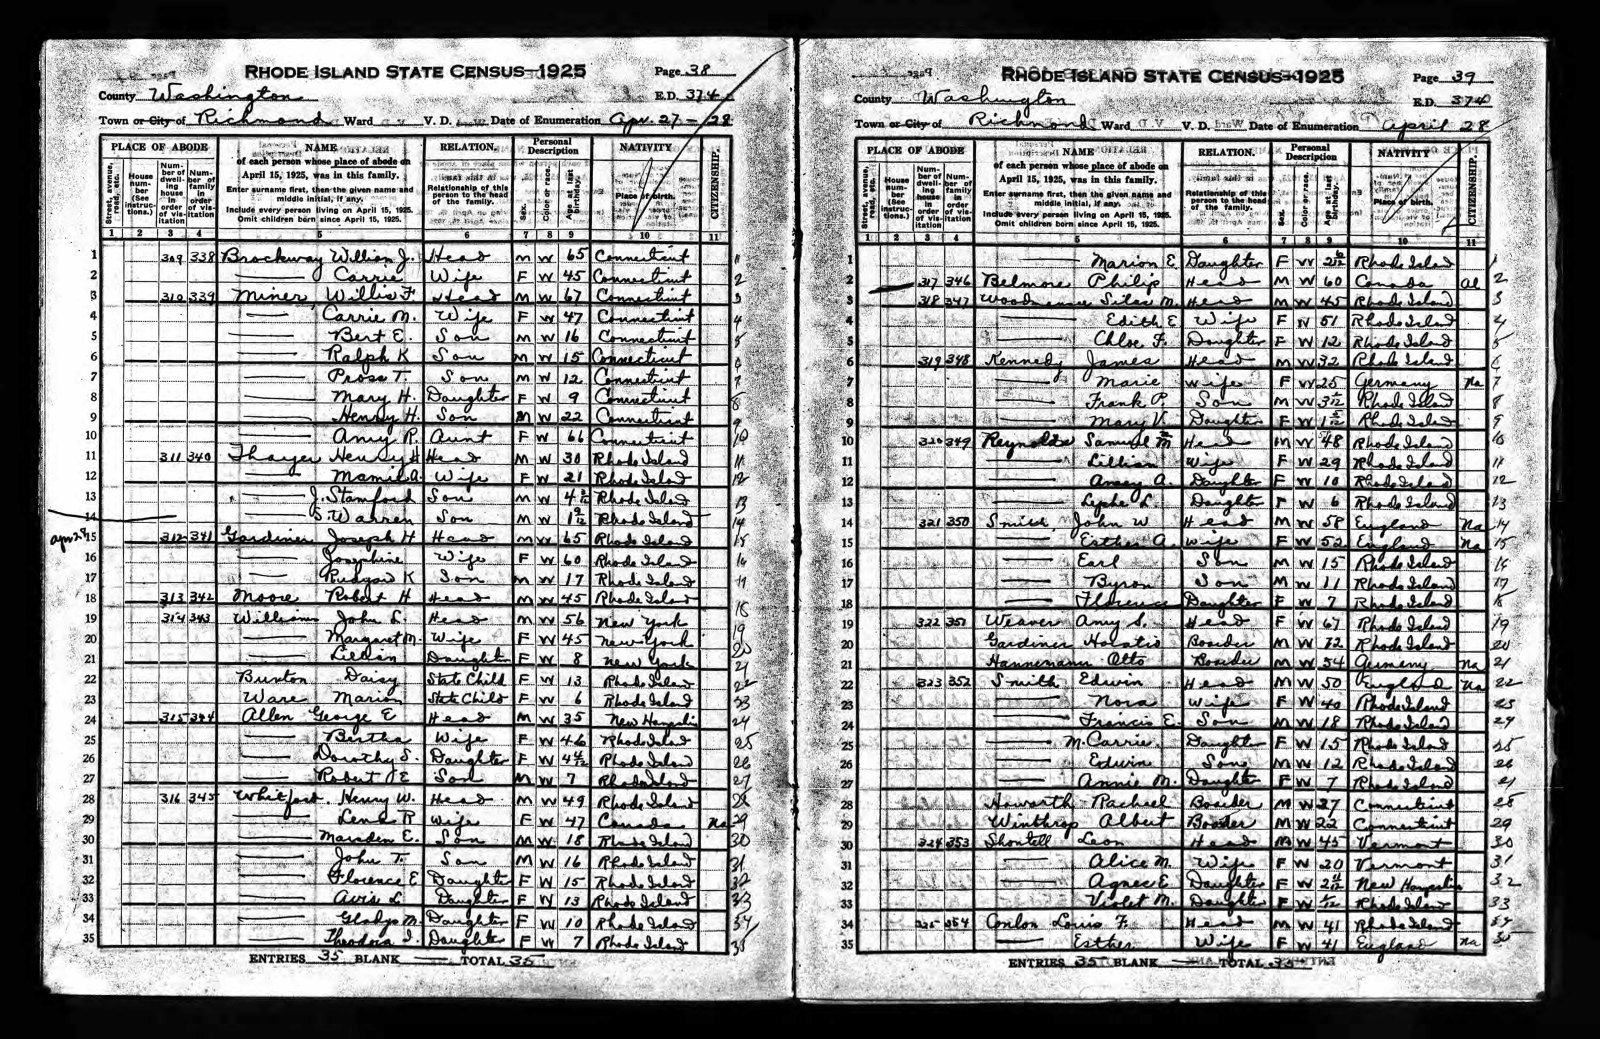 RHODE ISLAND STATE CENSUS-1925
Page 38
County Washington
E.D. 374
Town or City of Richmond Ward V. D. Date of Enumeration Apr. 27-28
PLACE OF ABODE NAME RELATION. Personal Description NATIVITY CITIZENSHIP.
Street, avenue, road, etc. House number (See instructions.) Number of dwelling house in order of visitation Number of family in order of visitation
of each person whose place of abode on April 15, 1925, was in this family.
Enter surname first, then the given name and middle initial, if any.
Include every person living on April 15, 1925. Omit children born since April 15, 1925.
Relationship of this person to the head of the family.
Sex. Color or race. Age at last birthday. Place of birth.
1 2 3 4 5 6 7 8 9 10 11
1 309 338 Brockway William J. Head M W 65 Connecticut
2 Carrie Wife F W 45 Connecticut 2
3 310 339 Miner, Willis F Head M W 67 Connecticut 3
4 Carrie M. Wife F W 47 Connecticut 4
5 Bert E. Son M W 16 Connecticut 5
6 Ralph K Son M W 15 Connecticut 6
7 T. Son M W 12 Connecticut 7
8 Mary H. Daughter F W 9 Connecticut 8
9 Henry H. Son M W 22 Connecticut 9
10 Amy R. Aunt F W 66 Connecticut 10
11 311 340 Thayer Henry H Head M W 30 Rhode Island 11
12 Mamie A. Wife F W 21 Rhode Island 12
13 J. Stamford Son M W 4 Rhode Island 13
14 S. Warren Son M W 1 Rhode Island 14
apr 28 15 312 341 Gardiner Joseph H Head M W 65 Rhode Island 15
16 Josephine Wife F W 60 Rhode Island 16
17 K Son M W 17 Rhode Island 17
18 313 342 Moore Robert H Head M W 45 Rhode Island 18
19 314 343 Williams John L. Head M W 56 New York 19
20 Margaret M. Wife F W 45 New York 20
21 Lillian Daughter F W 8 New York 21
22 Burton Daisy State Child F W 13 Rhode Island 22
23 Ware Marion State Child F W 6 Rhode Island 23
24 315 344 Allen George E Head M W 35 New Hampshire 24
25 Bertha Wife F W 46 Rhode Island 25
26 Dorothy S. Daughter F W 4 Rhode Island 26
27 Robert E Son M W 7 Rhode Island 27
28 316 345 Whitford Henry W. Head M W 49 Rhode Island 28
29 Lena R Wife F W 47 Canada Na 29
30 Marsden E. Son M W 18 Rhode Island 30
31 John T. Son M W 16 Rhode Island 31
32 Florence E Daughter F W 15 Rhode Island 32
33 Avis L Daughter F W 13 Rhode Island 33
34 Gladys M. Daughter F W 10 Rhode Island 34
35 Theodora I. Daughter F W 7 Rhode Island 35
ENTRIES 35 BLANK TOTAL 35
RHODE ISLAND STATE CENSUS-1925
Page 39
County Washington
E.D. 374
Town or City of Richmond Ward V. D. Date of Enumeration April 28
PLACE OF ABODE NAME RELATION. Personal Description NATIVITY CITIZENSHIP.
Street, avenue, road, etc. House number (See instructions.) Number of dwelling house in order of visitation Number of family in order of visitation
of each person whose place of abode on April 15, 1925, was in this family.
Enter surname first, then the given name and middle initial, if any.
Include every person living on April 15, 1925. Omit children born since April 15, 1925.
Relationship of this person to the head of the family.
Sex. Color or race. Age at last birthday. Place of birth.
1 2 3 4 5 6 7 8 9 10 11
1 Marion E. Daughter F W 2 Rhode Island 1
2 317 346 Belmore Philip Head M W 60 Canada Al 2
3 318 347 Woodmansee Silas M. Head M W 45 Rhode Island 3
4 Edith E Wife F W 51 Rhode Island 4
5 Chloe F. Daughter F W 12 Rhode Island 5
6 319 348 Kennedy James Head M W 32 Rhode Island 6
7 Marie Wife F W 25 Germany Na 7
8 Frank P. Son M W 3 Rhode Island 8
9 Mary V. Daughter F W 1 Rhode Island 9
10 320 349 Reynolds Samuel M Head M W 48 Rhode Island 10
11 Lillian Wife F W 29 Rhode Island 11
12 A. Daughter F W 10 Rhode Island 12
13 L. Daughter F W 6 Rhode Island 13
14 321 350 Smith John W Head M W 58 England Na 14
15 Esther A. Wife F W 52 England Na 15
16 Earl Son M W 15 Rhode Island 16
17 Byron Son M W 11 Rhode Island 17
18 Florence Daughter F W 7 Rhode Island 18
19 322 351 Weaver Amy S. Head F W 67 Rhode Island 19
20 Gardiner Horatio Boarder M W 72 Rhode Island 20
21 Hannemann Otto Boarder M W 54 Germany Na 21
22 323 352 Smith Edwin Head M W 50 England Na 22
23 Nora Wife F W 40 Rhode Island 23
24 Francis E. Son M W 18 Rhode Island 24
25 M. Carrie Daughter F W 15 Rhode Island 25
26 Edwin Son M W 12 Rhode Island 26
27 Annie M. Daughter F W 7 Rhode Island 27
28 Howarth Rachael Boarder M W 27 Connecticut 28
29 Winthrop Albert Boarder M W 22 Connecticut 29
30 324 353 Shontell Leon Head M W 45 Vermont 30
31 Alice M. Wife F W 20 Vermont 31
32 Agnes E Daughter F W 2 New Hampshire 32
33 Violet M. Daughter F W Rhode Island 33
34 325 354 Conlon Louis F. Head M W 41 Rhode Island 34
35 Esther Wife F W 41 England Na 35
ENTRIES 35 BLANK TOTAL 35